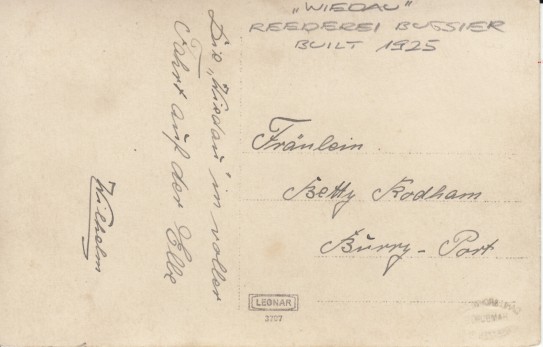 „WIEDAU"
REEDEREI BUGSIER
BUILT 1925
Die „Wiedau" in voller
Fahrt auf der Elbe
Wilhelm
Fräulein
Betty Rodham
Burry-Port
LEONAR
3707